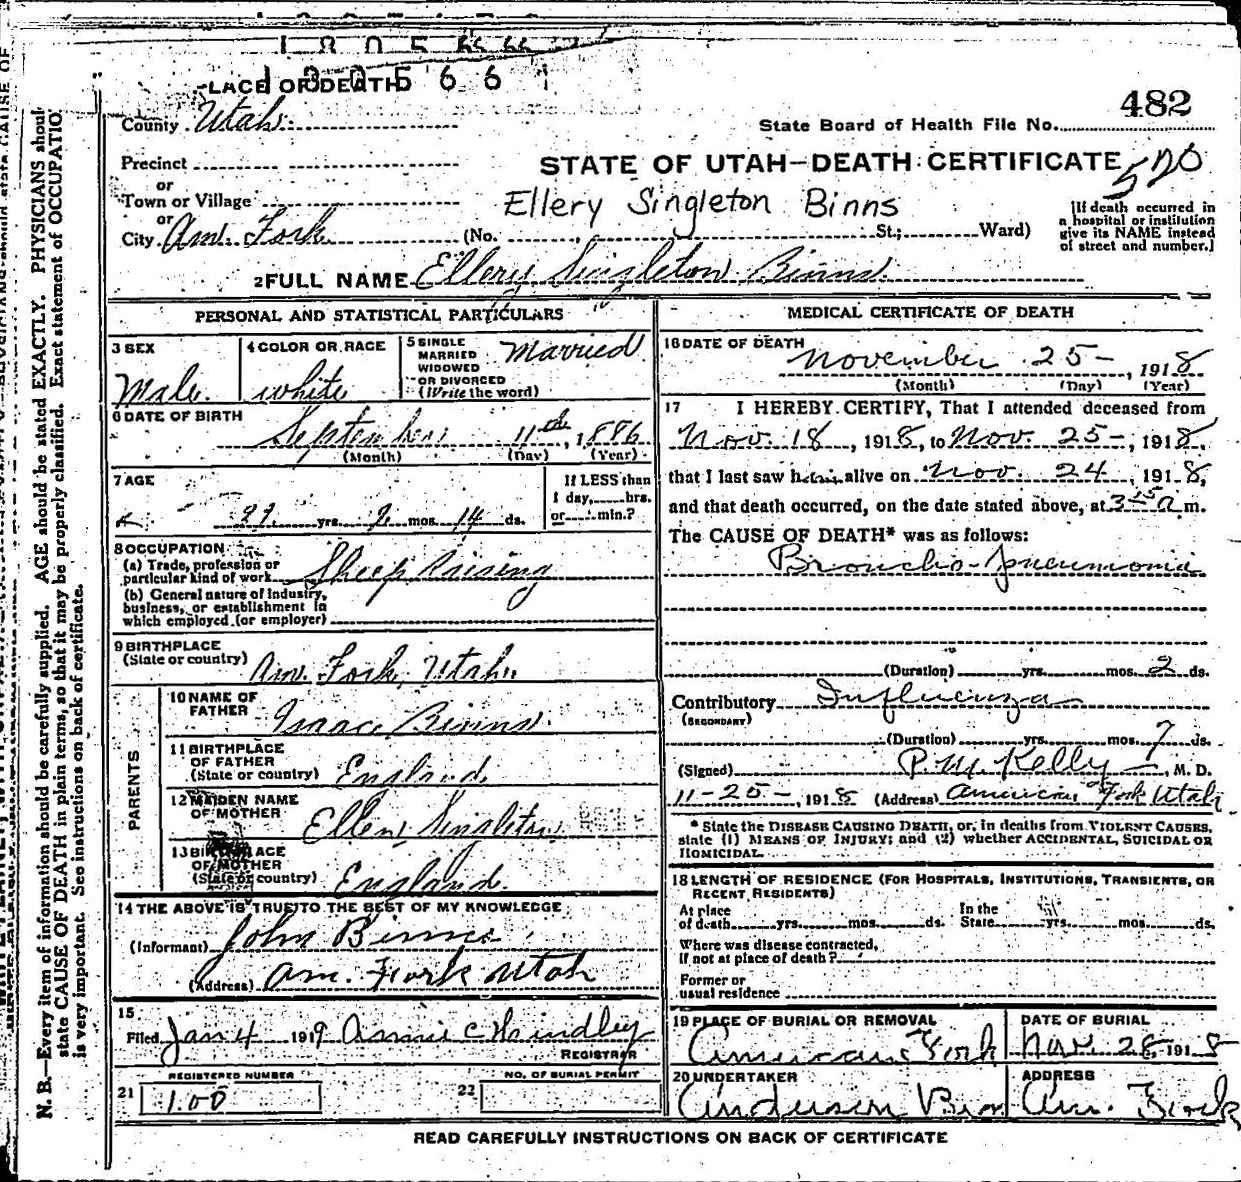 PLACE OF DEATH
1305661
482
County Utah
State Board of Health File No.
Precinct
STATE OF UTAH—DEATH CERTIFICATE
520
or
Town or Village
Ellery Singleton Binns
or
City Am. Fork (No. St.; Ward)
[If death occurred in
a hospital or institution
give its NAME instead
of street and number.]
2 FULL NAME Ellery Singleton Binns
PERSONAL AND STATISTICAL PARTICULARS
3 SEX
Male
4 COLOR OR RACE
white
5 SINGLE
MARRIED
WIDOWED
OR DIVORCED
(Write the word)
Married
6 DATE OF BIRTH
September 11th, 1886
(Month) (Day) (Year)
7 AGE
yrs. 2 mos. 14 ds.
If LESS than
1 day, hrs.
or min.?
8 OCCUPATION
(a) Trade, profession or
particular kind of work Sheep Raising
(b) General nature of industry,
business, or establishment in
which employed (or employer)
9 BIRTHPLACE
(State or country) Am. Fork, Utah
PARENTS
10 NAME OF
FATHER Isaac Binns
11 BIRTHPLACE
OF FATHER
(State or country) England
12 MAIDEN NAME
OF MOTHER Ellen Singleton
13 BIRTHPLACE
OF MOTHER
(State or country) England
14 THE ABOVE IS TRUE TO THE BEST OF MY KNOWLEDGE
(Informant) John Binns
(Address) Am. Fork Utah
15
Filed Jan 4 1919 Annie C Hindley
REGISTRAR
REGISTERED NUMBER
21 100
NO. OF BURIAL PERMIT
22
MEDICAL CERTIFICATE OF DEATH
16 DATE OF DEATH
November 25-, 1918
(Month) (Day) (Year)
17 I HEREBY CERTIFY, That I attended deceased from
Nov. 18, 1918, to Nov. 25-, 1918,
that I last saw him alive on Nov. 24, 1918,
and that death occurred, on the date stated above, at 3 15 a m.
The CAUSE OF DEATH* was as follows:
Broncho-Pneumonia
(Duration) yrs. mos. 2 ds.
Contributory Influenza
(SECONDARY)
(Duration) yrs. mos. 7 ds.
(Signed) P. M. Kelly, M. D.
11-25-, 1918 (Address) American Fork Utah
* State the DISEASE CAUSING DEATH, or, in deaths from VIOLENT CAUSES,
state (1) MEANS OF INJURY; and (2) whether ACCIDENTAL, SUICIDAL OR
HOMICIDAL.
18 LENGTH OF RESIDENCE (FOR HOSPITALS, INSTITUTIONS, TRANSIENTS, OR
RECENT RESIDENTS)
At place
of death yrs. mos. ds.
In the
State yrs. mos. ds.
Where was disease contracted,
If not at place of death?
Former or
usual residence
19 PLACE OF BURIAL OR REMOVAL
American Fork
DATE OF BURIAL
Nov. 28, 1918
20 UNDERTAKER
Anderson Bros
ADDRESS
Am. Fork
READ CAREFULLY INSTRUCTIONS ON BACK OF CERTIFICATE
N. B.—Every item of information should be carefully supplied. AGE should be stated EXACTLY. PHYSICIANS should
state CAUSE OF DEATH in plain terms, so that it may be properly classified. Exact statement of OCCUPATION
is very important. See instructions on back of certificate.